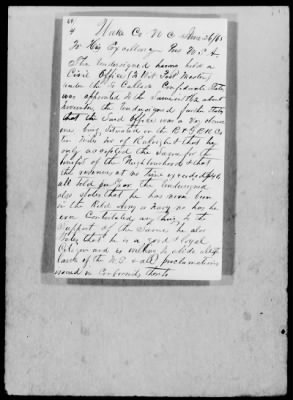 Wake Co N C June 26/65
To His Excellency Pres U. S. A.
The undersigned having held a
Civil Office (To Wit Post Master)
under the So Called Confederate States
was appointed to the Same
November the undersigned further States
that the Said Office was a very obscure
one being Situated in the
ten miles of Raleigh & that he
only accepted the Same for the
benefit of the Neighborhood & that
the revenue at no time exceeded
all told per year the undersigned
also states that he has never been
in the Rebel Army or Navy nor has he
ever Contributed any thing to the
Support of the Same he also
States that he is a good & loyal
Citizen and is willing to abide all
laws of the U. S. & all proclamations
issued in Conformity thereto